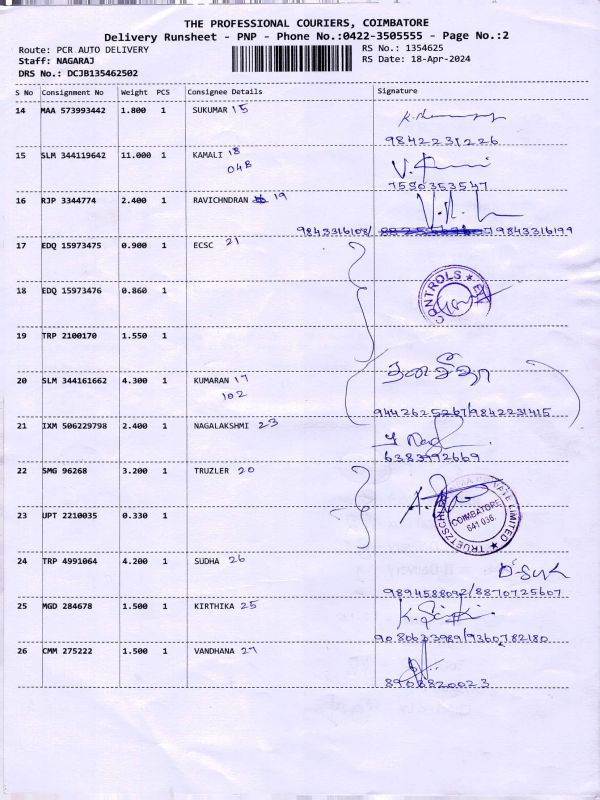 THE PROFESSIONAL COURIERS, COIMBATORE
Delivery Runsheet - PNP - Phone No.:0422-3505555 - Page No.:2
Route: PCR AUTO DELIVERY
RS No.: 1354625
Staff: NAGARAJ
RS Date: 18-Apr-2024
DRS No.: DCJB135462502
S No Consignment No Weight PCS Consignee Details Signature
14 MAA 573993442 1.800 1 SUKUMAR 15
9842231226
15 SLM 344119642 11.000 1 KAMALI 18
04B
7550353547
16 RJP 3344774 2.400 1 RAVICHNDRAN 19
9843316108/ 9843316199
17 EDQ 15973475 0.900 1 ECSC 21
18 EDQ 15973476 0.860 1
CONTROLS
19 TRP 2100170 1.550 1
20 SLM 344161662 4.300 1 KUMARAN 17
102
9442625267/9842231415
21 IXM 506229798 2.400 1 NAGALAKSHMI 23
6383992669
22 SMG 96268 3.200 1 TRUZLER 20
23 UPT 2210035 0.330 1
COIMBATORE
641 036.
PRIVATE LIMITED
24 TRP 4991064 4.200 1 SUDHA 26
9894588092/8870725607
25 MGD 284678 1.500 1 KIRTHIKA 25
9080603989/9360782180
26 CMM 275222 1.500 1 VANDHANA 27
8900820023